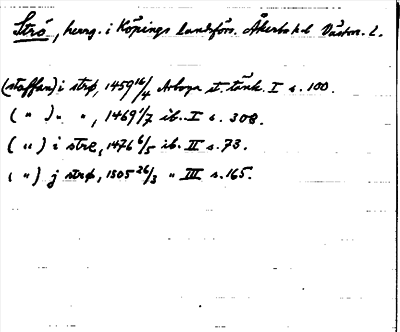 Strö, herrg. i Köpings landsförs. Åkerbo hd Västm. l.
(staffan) i strø, 1459 16/4 Arboga st. tänk. I s. 100.
( " ) " ", 1469 1/7 ib. I s. 308.
( " ) i strø, 1476 6/5 ib. II s. 73.
( " ) j strø, 1505 26/3 " III s. 165.